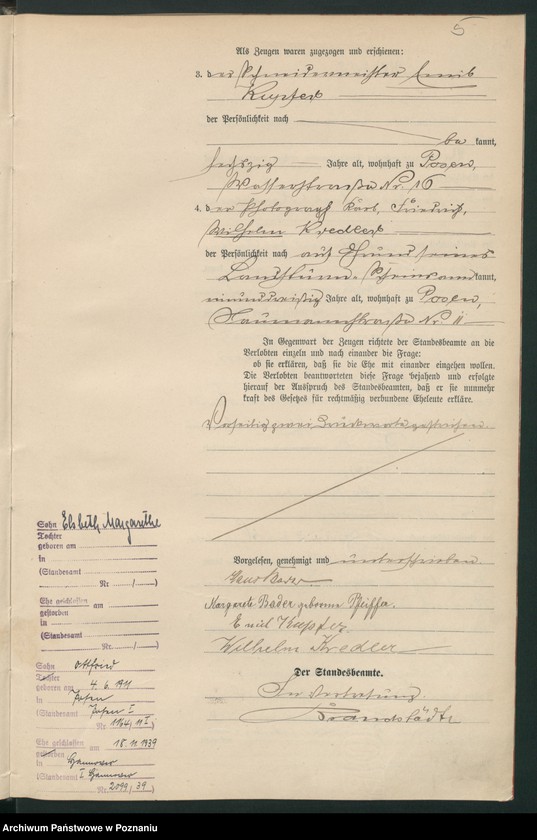 5
Als Zeugen waren zugezogen und erschienen:
3. der Schneidermeister Emil
Kupfer
der Persönlichkeit nach
be kannt,
sechszig Jahre alt, wohnhaft zu Posen,
Wasserstrasse Nr. 16
4. der Photograph Karl, Friedrich,
Wilhelm Kredler
der Persönlichkeit nach auf Grund seines
Landsturm- kannt,
einunddreißig Jahre alt, wohnhaft zu Posen,
Naumannstrasse Nr. 11
In Gegenwart der Zeugen richtete der Standesbeamte an die
Verlobten einzeln und nach einander die Frage:
ob sie erklären, daß sie die Ehe mit einander eingehen wollen.
Die Verlobten beantworteten diese Frage bejahend und erfolgte
hierauf der Ausspruch des Standesbeamten, daß er sie nunmehr
kraft des Gesetzes für rechtmäßig verbundene Eheleute erkläre.
Vorseitig zwei Druckworte gestrichen.
Vorgelesen, genehmigt und unterschrieben
Bader
Margarete Bader geborene Pfeiffer.
Emil Kupfer
Wilhelm Kredler
Der Standesbeamte.
In Vertretung
Brandstädt
Sohn Elsbeth Margarethe
Tochter
geboren am
in
(Standesamt
Nr. / )
Ehe geschlossen am
gestorben
in
(Standesamt
Nr. / )
Sohn Ottfried
Tochter
geboren am 4. 6. 1911
in Posen
(Standesamt Posen I
Nr. 1154/11 I)
Ehe geschlossen am 18. 11. 1939
gestorben
in Hannover
(Standesamt I Hannover
Nr. 2099/39)
Archiwum Państwowe w Poznaniu